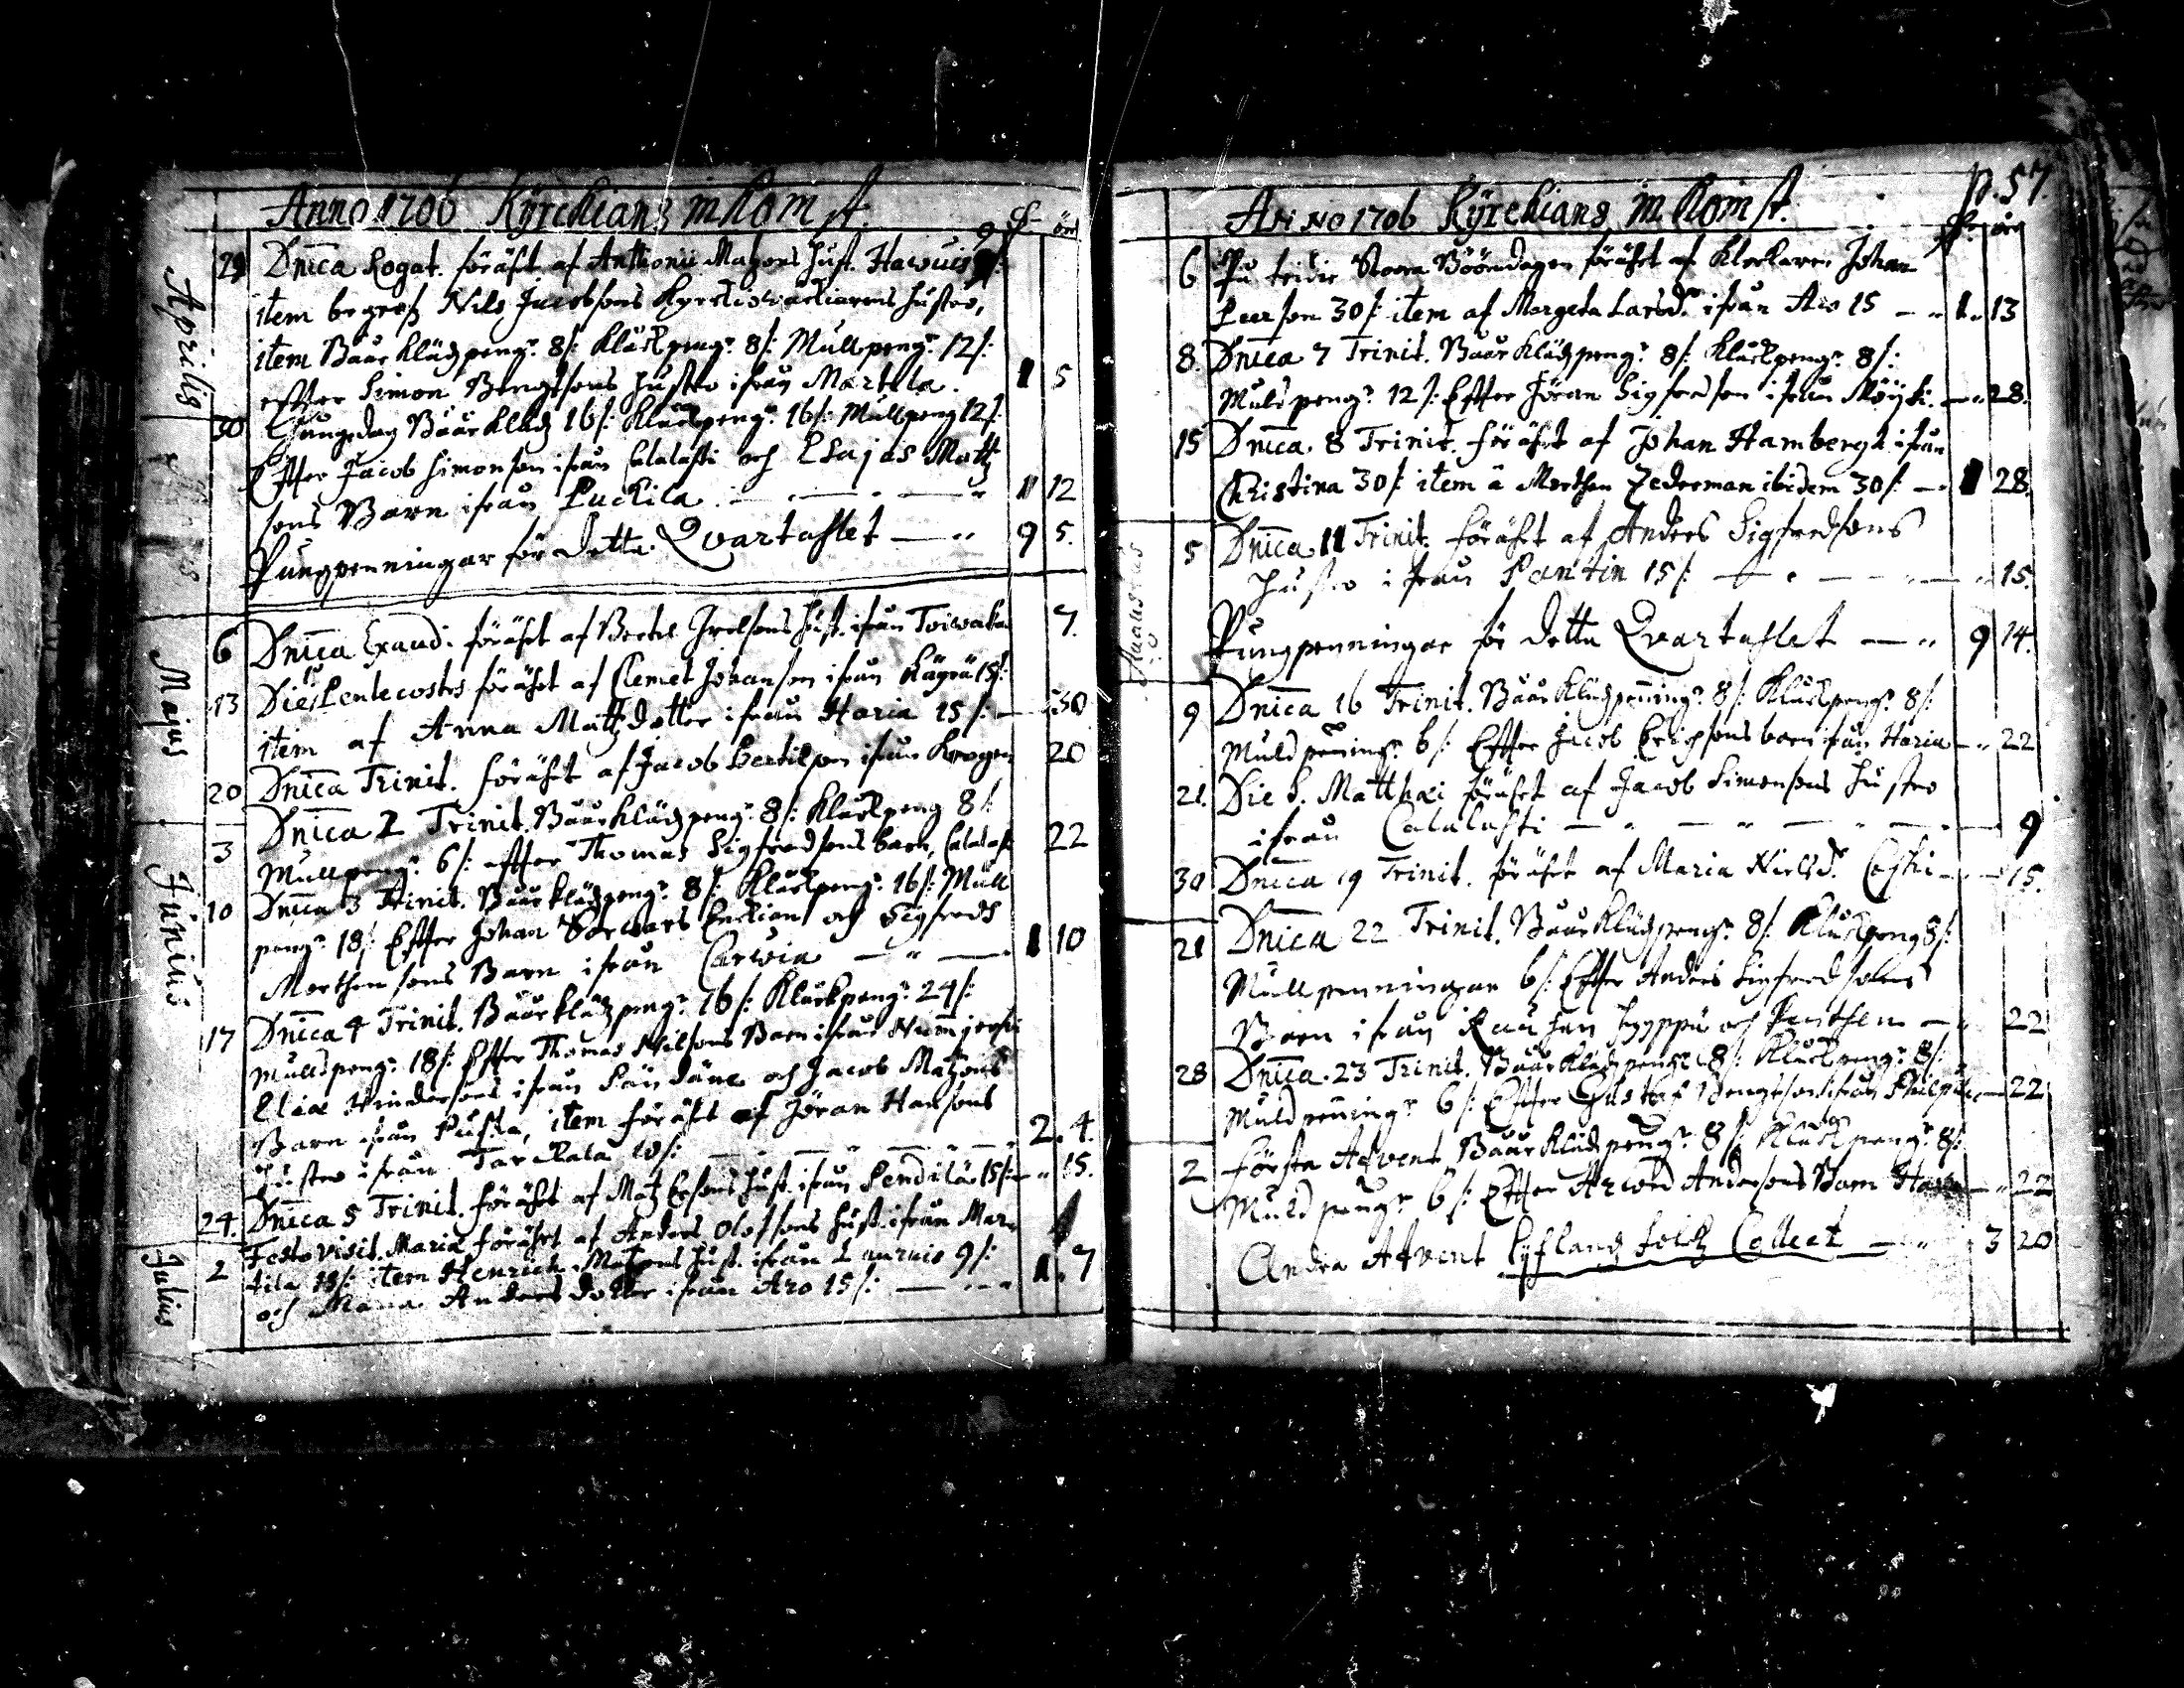 Anno 1706 Kyrckians inkomst.
öre
Aprilis
29 Dnica Rogat. föräht af Anthonii Matzons hust. Hawuis 9/:
item begrafz Nils Jacobsons Kyrckiowächiarens hustro,
item Båårklädz peng:r 8/: Klåckpeng:r 8/: Mullpeng:r 12/:
effter Simon Bengtsons hustro ifrån Martila. 1 5
30 Thungsdag Båårklädz 16/: Klåckpeng:r 16/: Mullpeng 12/:
Effter Jacob Simonson ifrån Calalasti och Esajas Mattz
sons Barn ifrån Puckila 1 12
Pungpenningar för detta Qvartahlet 9 5.
Majus
6 Dnica Exaudi föräht af Bertil Jrelsons hust. ifrån Toiwaka 7.
13 Die Pentecostes föräht af Clemet Johanson ifrån Kägrä 15/:
item af Anna Mattzdotter ifrån Haria 15/: 30
20 Dnica Trinit. föräht af Jacob Bertilson ifrån Krogen 20
Junius
3 Dnica 2 Trinit. Båårklädz peng:r 8/: Klåckpeng 8/:
Mullpeng:r 6/: effter Thomas Sigfredsons barn, Calalast 22
10 Dnica 3 Trinit. Båårklädzpeng:r 8/: Klåckpeng:r 16/: Mull
peng:r 18/: Effter Johan Enckian och Sigfredh
Morthensons Barn ifrån Carwia 1 10
17 Dnica 4 Trinit. Båårklädz peng:r 16/: Klåckpeng:r 24/:
Mulldpeng:r 18/: Effter Thomas Nilsons Barn ifrån Numjerfwi
Eliæ Hindersons ifrån Sändäne och Jacob Matzons
Barn ifrån Pusta, item föräht af Jöran Hansons
hustro ifrån Tarckala 10/: 2. 4.
24. Dnica 5 Trinit. föräht af Matz Ersons hust. ifrån Pendilä 15/: 15.
Julius
2 Festo visit. Mariæ föräht af Anders Olofsons hust. ifrån Mar
tila 18/: item Henrich Matzons hust. ifrån Laurais 9/:
och Maria Andersdotter ifrån Aro 15/: 1 7
p. 57.
Anno 1706 Kyrckians inkomst.
öre
6 På tridie Stoora Böönedagen föräht af Klockaren Johan
Peerson 30/: item af Margeta Larsd:r ifrån Aro 15 1 13
8. Dnica 7 Trinit. Båårklädzpeng:r 8/: Klåckpeng:r 8/:
Muldpeng:r 12/: Effter Jöran Sigfredson ifrån Möyki. 28.
15 Dnica 8 Trinit. föräht af Johan Hambergh ifrån
Christina 30/: item ä Morthen Zederman ibidem 30/: 1 28.
Augustus
5 Dnica 11 Trinit. föräht af Anders Sigfredsons
hustro ifrån Pantin 15/: 15.
Pungpenningar för detta Qvartahlet 9 14.
9 Dnica 16 Trinit. Båårklädzpening:r 8/: Klåckpeng:r 8/:
Muldpening:r 6/: Effter Jacob Erichsons barn ifrån Haria 22
21. Die S. Matthæi föräht af Jacob Simonsons hustro
ifrån Calalasti 9
30 Dnica 19 Trinit. föräht af Maria Nielsd:r Coski 15.
21 Dnica 22 Trinit. Båårklädzpeng:r 8/: Klåckpeng 8/:
Mullpenningar 6/: Effter Anders Sigfredsons
Barn ifrån Rauhan och Panthen 22
28 Dnica 23 Trinit. Båårklädzpeng:r 8/: Klåckpeng:r 8/:
Muldpening:r 6/: Effter Gustaf Bengtson ifrån 22
2 första Advent Båårklädzpeng:r 8/: Klåckpeng:r 8/:
Muldpeng:r 6/: Effter Arwed Andersons Barn 22
Andra Advent Lyflandz folckz Collect 3 20